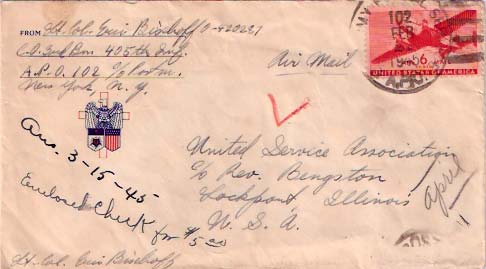 FROM Lt. Col. Eric Bischoff O-420237
C.O. 3rd Bn 405th Inf.
A.P.O. 102 c/o Postm.
New York, N.Y.
Air Mail
102
FEB
1945
A.P.O.
6
UNITED STATES OF AMERICA
United Service Association
c/o Rev. Bengston
Lockport Illinois
U.S.A.
April
Ans. 3-15-45
Enclosed Check for $5.00
Lt. Col. Eric Bischoff